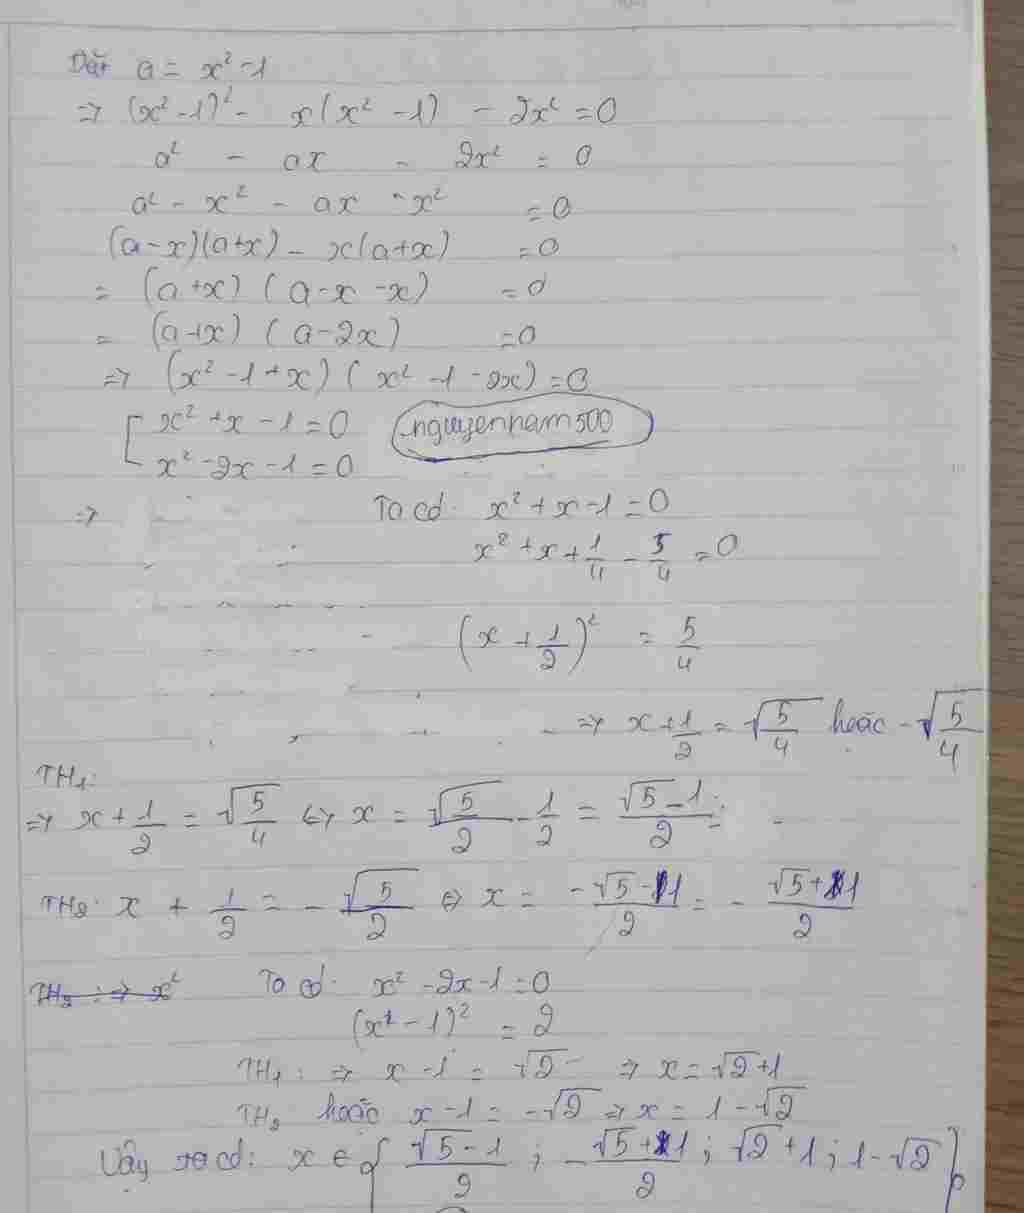 Đặt a = x² - 1
=> (x² - 1)² - x(x² - 1) - 2x² = 0
a² - ax - 2x² = 0
a² - x² - ax - x² = 0
(a - x)(a + x) - x(a + x) = 0
= (a + x) (a - x - x) = 0
= (a + x) (a - 2x) = 0
=> (x² - 1 + x) (x² - 1 - 2x) = 0
[ x² + x - 1 = 0
x² - 2x - 1 = 0
nguyennam500
=> Ta có: x² + x - 1 = 0
x² + x + 1/4 - 5/4 = 0
(x + 1/2)² = 5/4
=> x + 1/2 = √(5/4) hoặc -√(5/4)
TH1:
=> x + 1/2 = √(5/4) <=> x = √5/2 - 1/2 = (√5 - 1)/2
TH2: x + 1/2 = -√5/2 <=> x = (-√5 - 1)/2 = -(√5 + 1)/2
TH2 : => x² Ta có: x² - 2x - 1 = 0
(x² - 1)² = 2
TH1 : => x - 1 = √2 => x = √2 + 1
TH2 hoặc x - 1 = -√2 => x = 1 - √2
Vậy ta có: x ∈ { (√5 - 1)/2 ; -(√5 + 1)/2 ; √2 + 1 ; 1 - √2 }